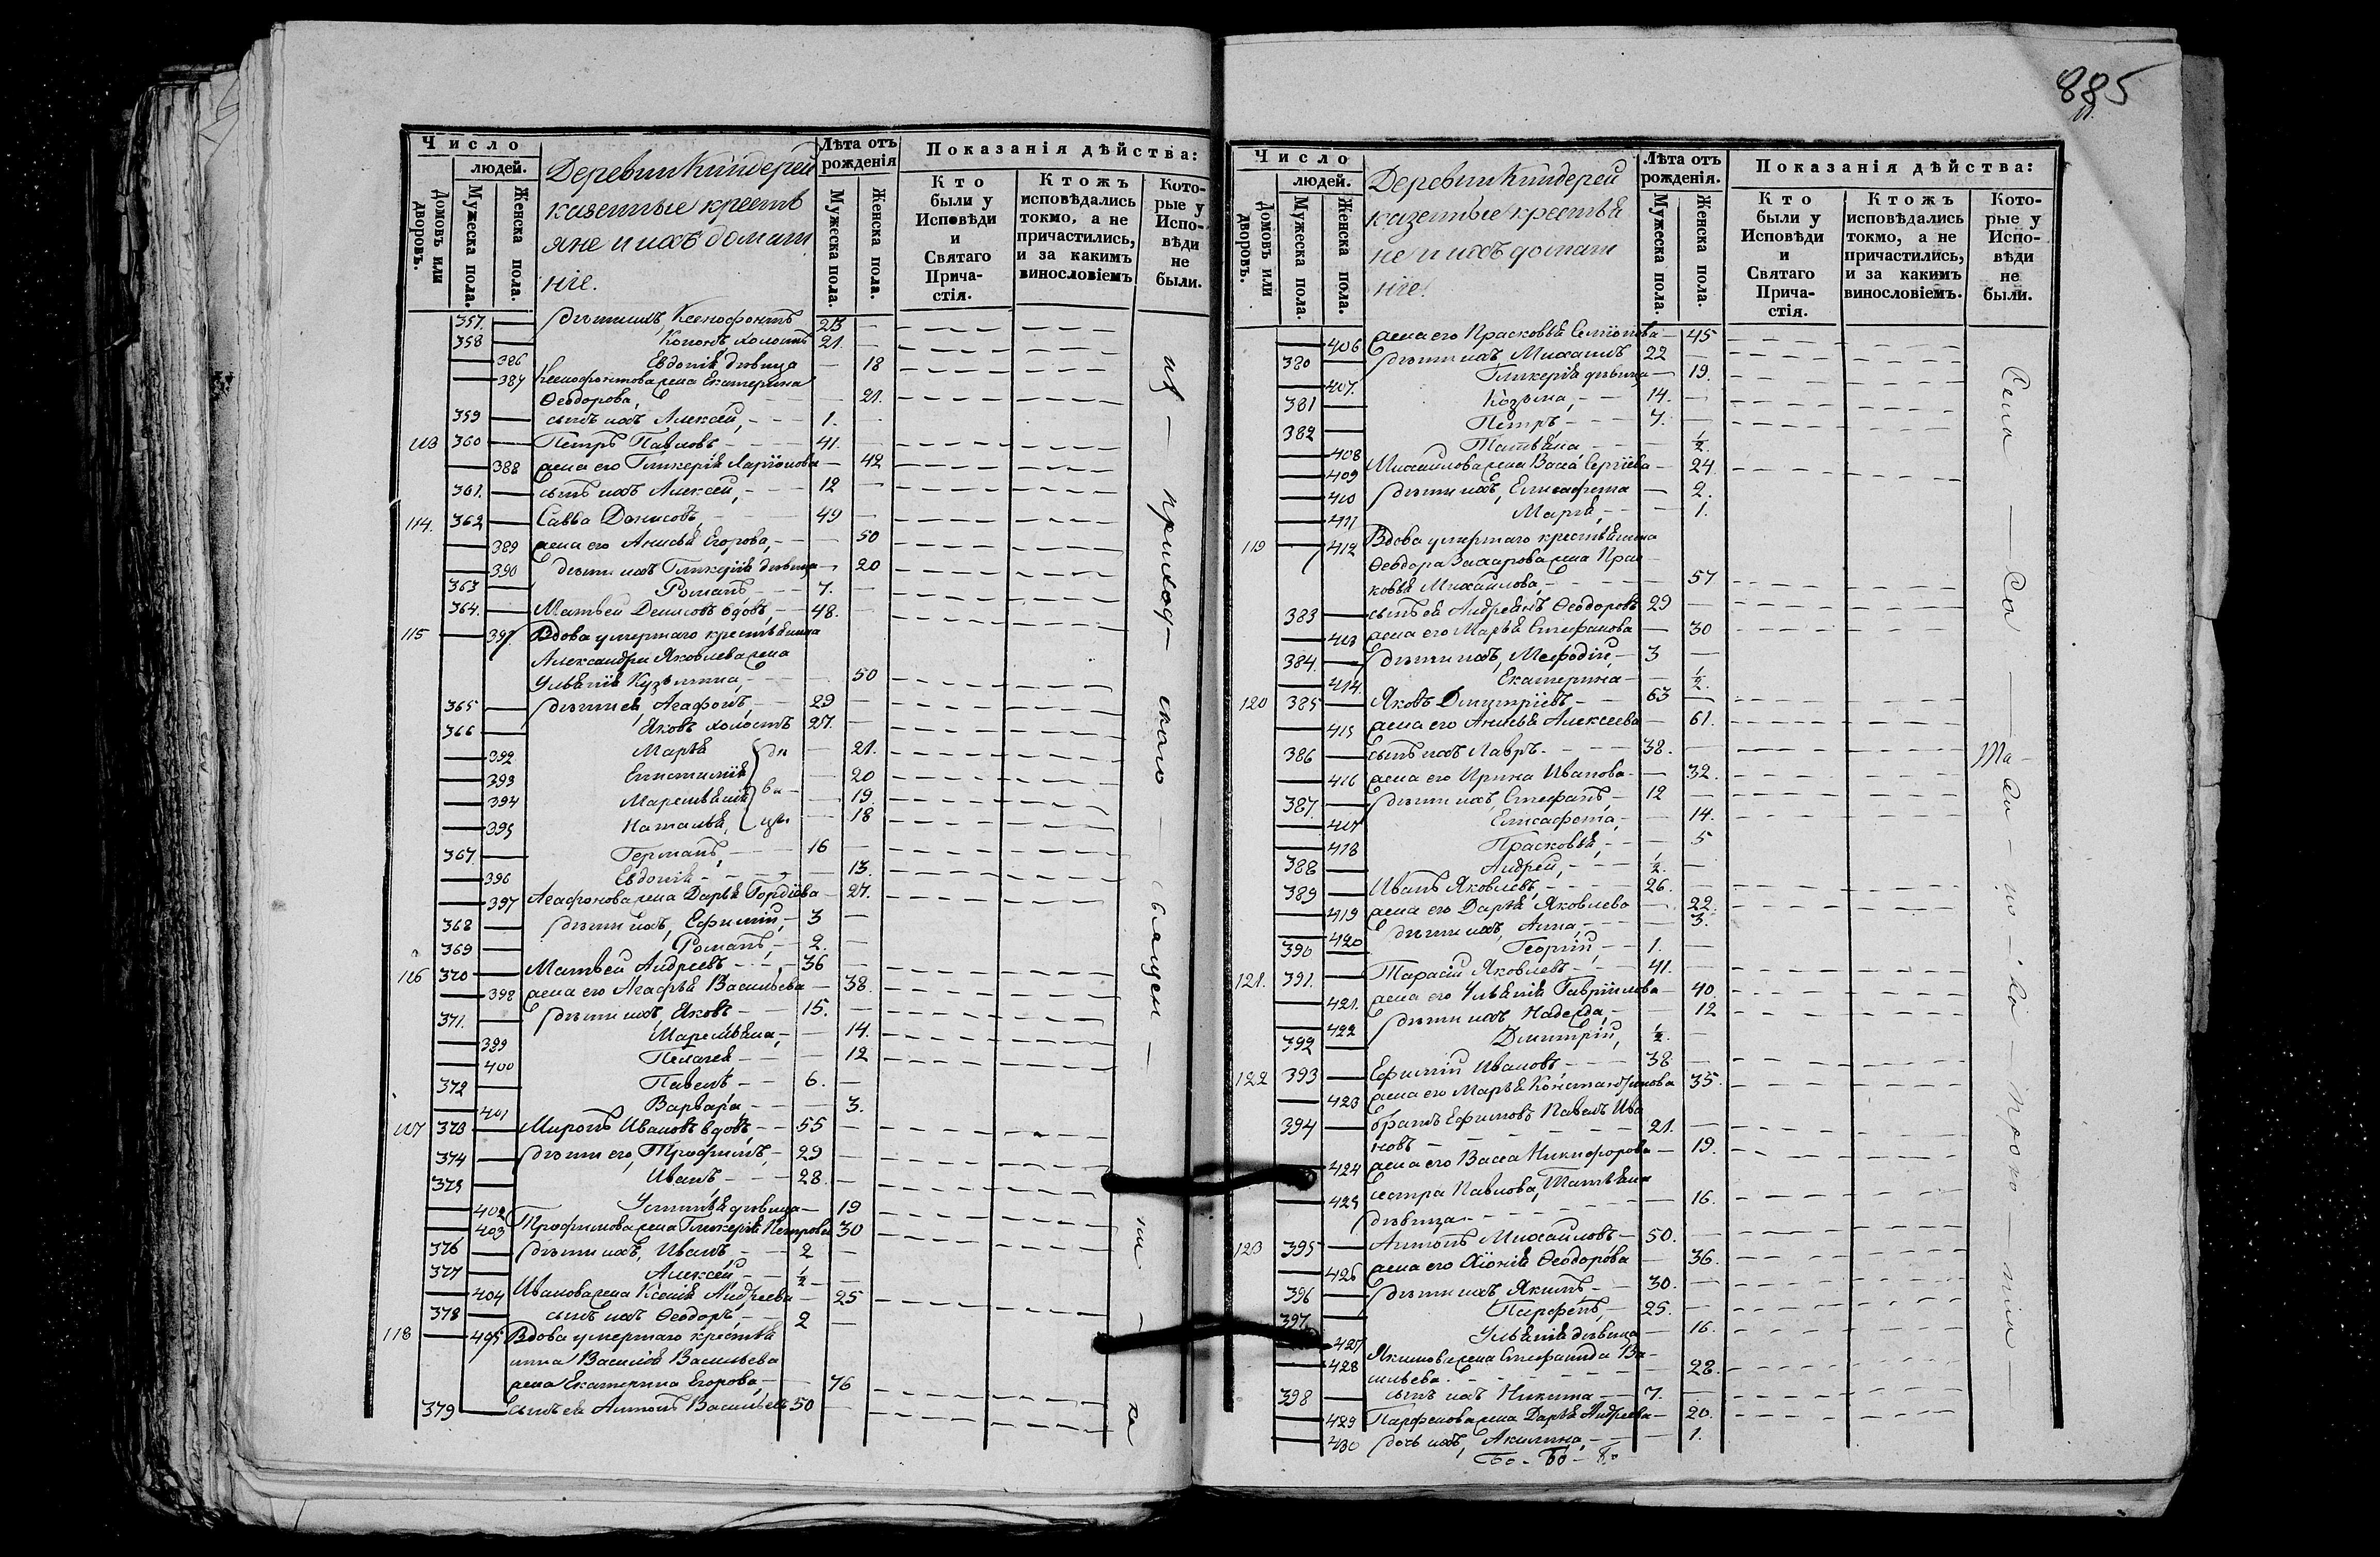 885
Число
людей.
Домовъ или дворовъ.
Мужеска пола.
Женска пола.
Деревни Киндерей
казенные кресть
яне и ихъ домаш
ніе.
Лѣта отъ рожденія
Мужеска пола.
Женска пола.
Показанія дѣйства:
Кто были у Исповѣди и Святаго Прича- стія.
Ктожъ исповѣдались токмо, а не причастились, и за какимъ винословіемъ
Кото- рые у Испо- вѣди не были.
357. дѣти ихъ, Ксенофонтъ 23
358 Кононъ холостъ 21.
386 Евдокія дѣвица 18
387 Ксенофонтова жена Екатерина
Ѳеодорова, 21.
359 сынъ ихъ Алексѣй, 1.
113 360 Петръ Павловъ 41.
388 жена его Гликерія Ларіонова 42
361. сынъ ихъ Алексѣй, 12
114. 362 Савва Денисовъ, 49
389 жена его Анисья Егорова, 50
390 дѣти ихъ Гликерія дѣвица 20
363 Романъ 7.
364. Матвей Денисовъ вдовъ, 48.
115 397 Вдова умершаго крестьянина
Александра Яковлева жена
Ульянія Кузьмина, 50
365 дѣти ея, Агафонъ, 29
366 Яковъ холостъ 27.
392 Марья дѣ 21.
393 Епистимія 20
394 Маремьянія ви 19
395 Наталья, цы 18
367. Германъ, 16
396 Евдокія 13.
397 Агафонова жена Дарья Гордіева 27.
368 дѣти ихъ, Ефимій, 3
369 Романъ, 2.
116 370 Матвей Андреевъ 36
398 жена его Агафья Васильева 38.
371. дѣти ихъ, Яковъ 15.
399 Маремьяна, 14.
400 Пелагея 12
372 Павелъ 6.
401 Варвара 3.
117 373 Миронъ Ивановъ вдовъ, 55
374 дѣти его, Трофимъ, 29
375 Иванъ, 28.
402 Устинья дѣвица 19
403 Трофимова жена Гликерія Петрова 30
376 дѣти ихъ, Иванъ, 2
377 Алексѣй ½
404 Иванова жена Ксенія Андреева 25
378 сынъ ихъ Ѳеодоръ, 2
118 405 Вдова умершаго крестья
нина Василья Васильева
жена Екатерина Егорова, 76
379 Сынъ ея Антонъ Васильевъ 50
из — приход — скаго — Священ —
Число
людей.
Домовъ или дворовъ.
Мужеска пола.
Женска пола.
Деревни Киндерей
казенные крестья
не и ихъ домаш
ніе.
Лѣта отъ рожденія.
Мужеска пола.
Женска пола.
Показанія дѣйства:
Кто были у Исповѣди и Святаго Прича- стія.
Ктожъ исповѣдались токмо, а не причастились, и за какимъ винословіемъ.
Кото- рые у Испо- вѣди не были.
406 жена его Прасковья Семіонова 45
380 дѣти ихъ Михаилъ 22
407. Гликерія дѣвица 19.
381 Козьма, 14.
382 Петръ 7.
408 Татьяна ½.
409 Михаилова жена Васса Сергіева 24
410 дѣти ихъ, Елисафета 2.
411 Марья, 1.
119 412 Вдова умершаго крестьянина
Ѳеодора Захарова жена Прас
ковья Михаилова, 57
383 сынъ ея Андреянъ Ѳеодоровъ 29
413 жена его Марья Стефанова 30
384. дѣти ихъ, Мефодій, 3
414. Екатерина ½.
120 385 Яковъ Дмитріевъ 63
415 жена его Анисья Алексеева 61.
386 сынъ ихъ Лавръ. 38.
416 жена его Ирина Иванова 32.
387. дѣти ихъ, Стефанъ, 12
417 Елисафета, 14.
418 Прасковья, 5
388 Андрей, ½.
389 Иванъ Яковлевъ, 26.
419 жена его Дарья Яковлева 22.
420 дѣти ихъ, Анна, 3.
390 Георгій, 1.
121. 391. Тарасій Яковлевъ 41.
421. жена его Ульянія Гавріилова 40.
422 дѣти ихъ Надежда, 12
392 Дмитрій, ½.
122 393 Ефимій Ивановъ 38
423 жена его Марья Константинова 35.
394 братъ Ефимовъ Павелъ Ива
новъ 21.
424 жена его Васса Никифорова 19.
425 сестра Павлова, Татьяна
дѣвица 16.
123 395 Антонъ Михаиловъ 50.
426 жена его Хіонія Ѳеодорова 36.
396 дѣти ихъ Якимъ 30.
397. Парфенъ, 25.
427 Ульянія дѣвица 16.
428 Якимова жена Стефанида Ва
сильева. 28.
398 сынъ ихъ Никита 7.
429 Парфенова жена Дарья Андреева 20.
430 дочь ихъ, Акилина, 1.